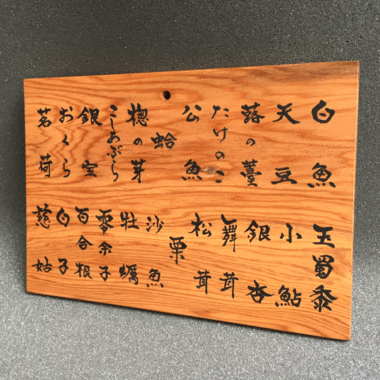 白魚
天豆
蕗の薹
たけのこ
公魚
蛤
楤の芽
こしあぶら
銀宝
おくら
茗荷
玉蜀黍
小鮎
銀杏
舞茸
松茸
栗
沙魚
牡蠣
零余子
百合根
白子
慈姑